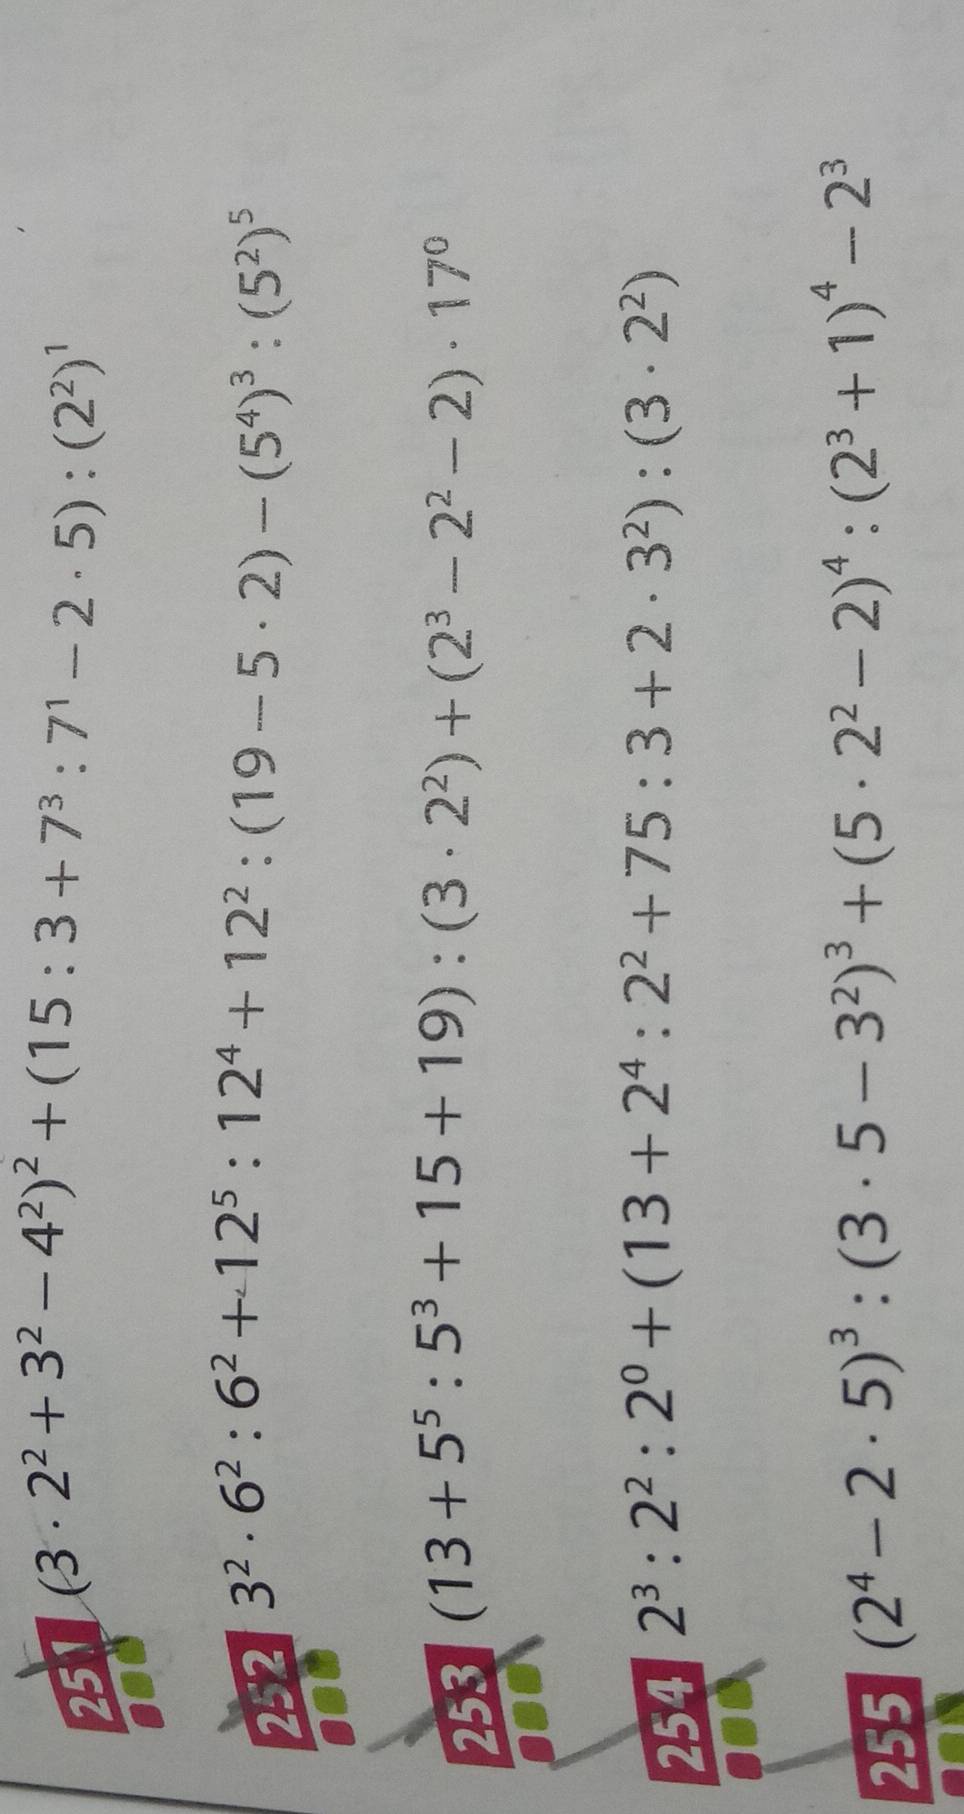 251 (3 · 2² + 3² − 4²)² + (15 : 3 + 7³ : 7¹ − 2 · 5) : (2²)¹
252 3² · 6² : 6² + 12⁵ : 12⁴ + 12² : (19 − 5 · 2) − (5⁴)³ : (5²)⁵
253 (13 + 5⁵ : 5³ + 15 + 19) : (3 · 2²) + (2³ − 2² − 2) · 17⁰
254 2³ : 2² : 2⁰ + (13 + 2⁴ : 2² + 75 : 3 + 2 · 3²) : (3 · 2²)
255 (2⁴ − 2 · 5)³ : (3 · 5 − 3²)³ + (5 · 2² − 2)⁴ : (2³ + 1)⁴ − 2³